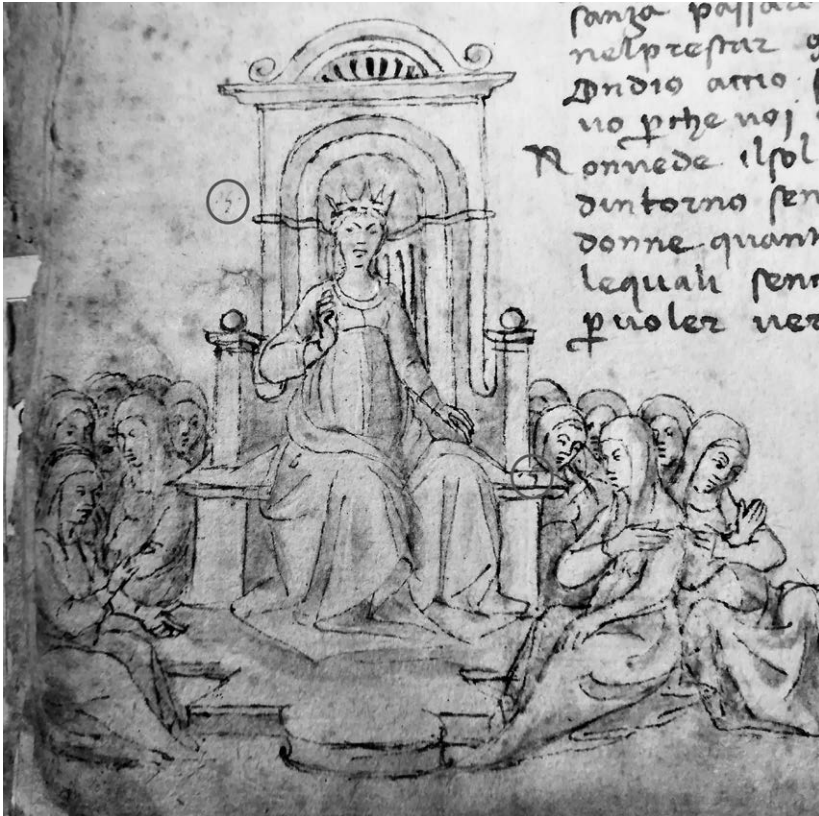 sanza passare
nelprestar
Ondio accio
uo pche uoj
Nonuede ilsol
dintorno sen
donne quan
lequali sen
puoler uer